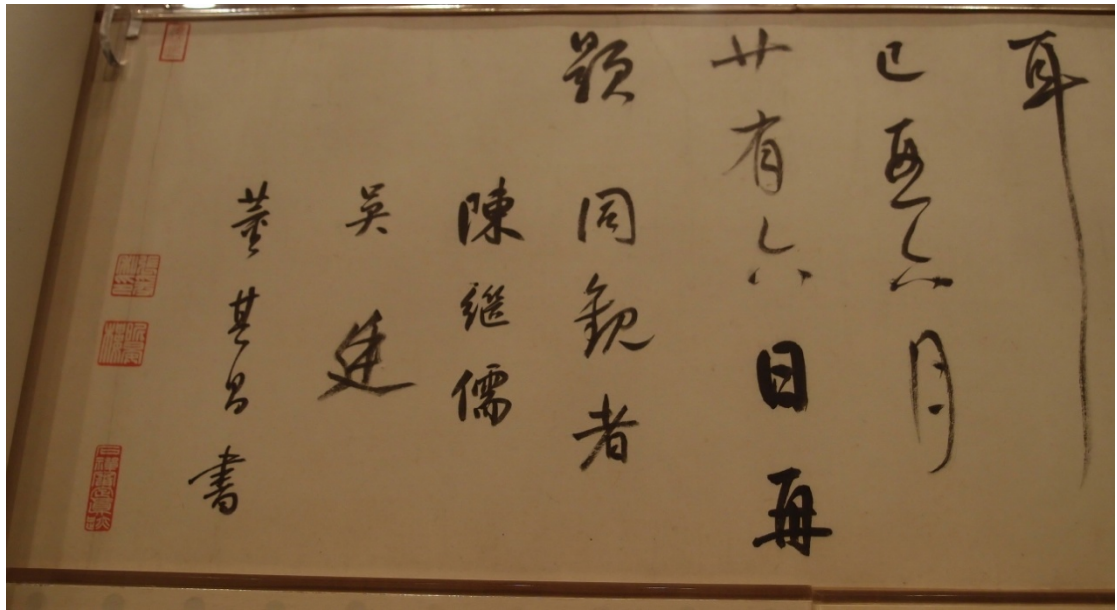 耳
己酉六月
廿有六日再
題 同觀者
陳繼儒
吳廷
董其昌書